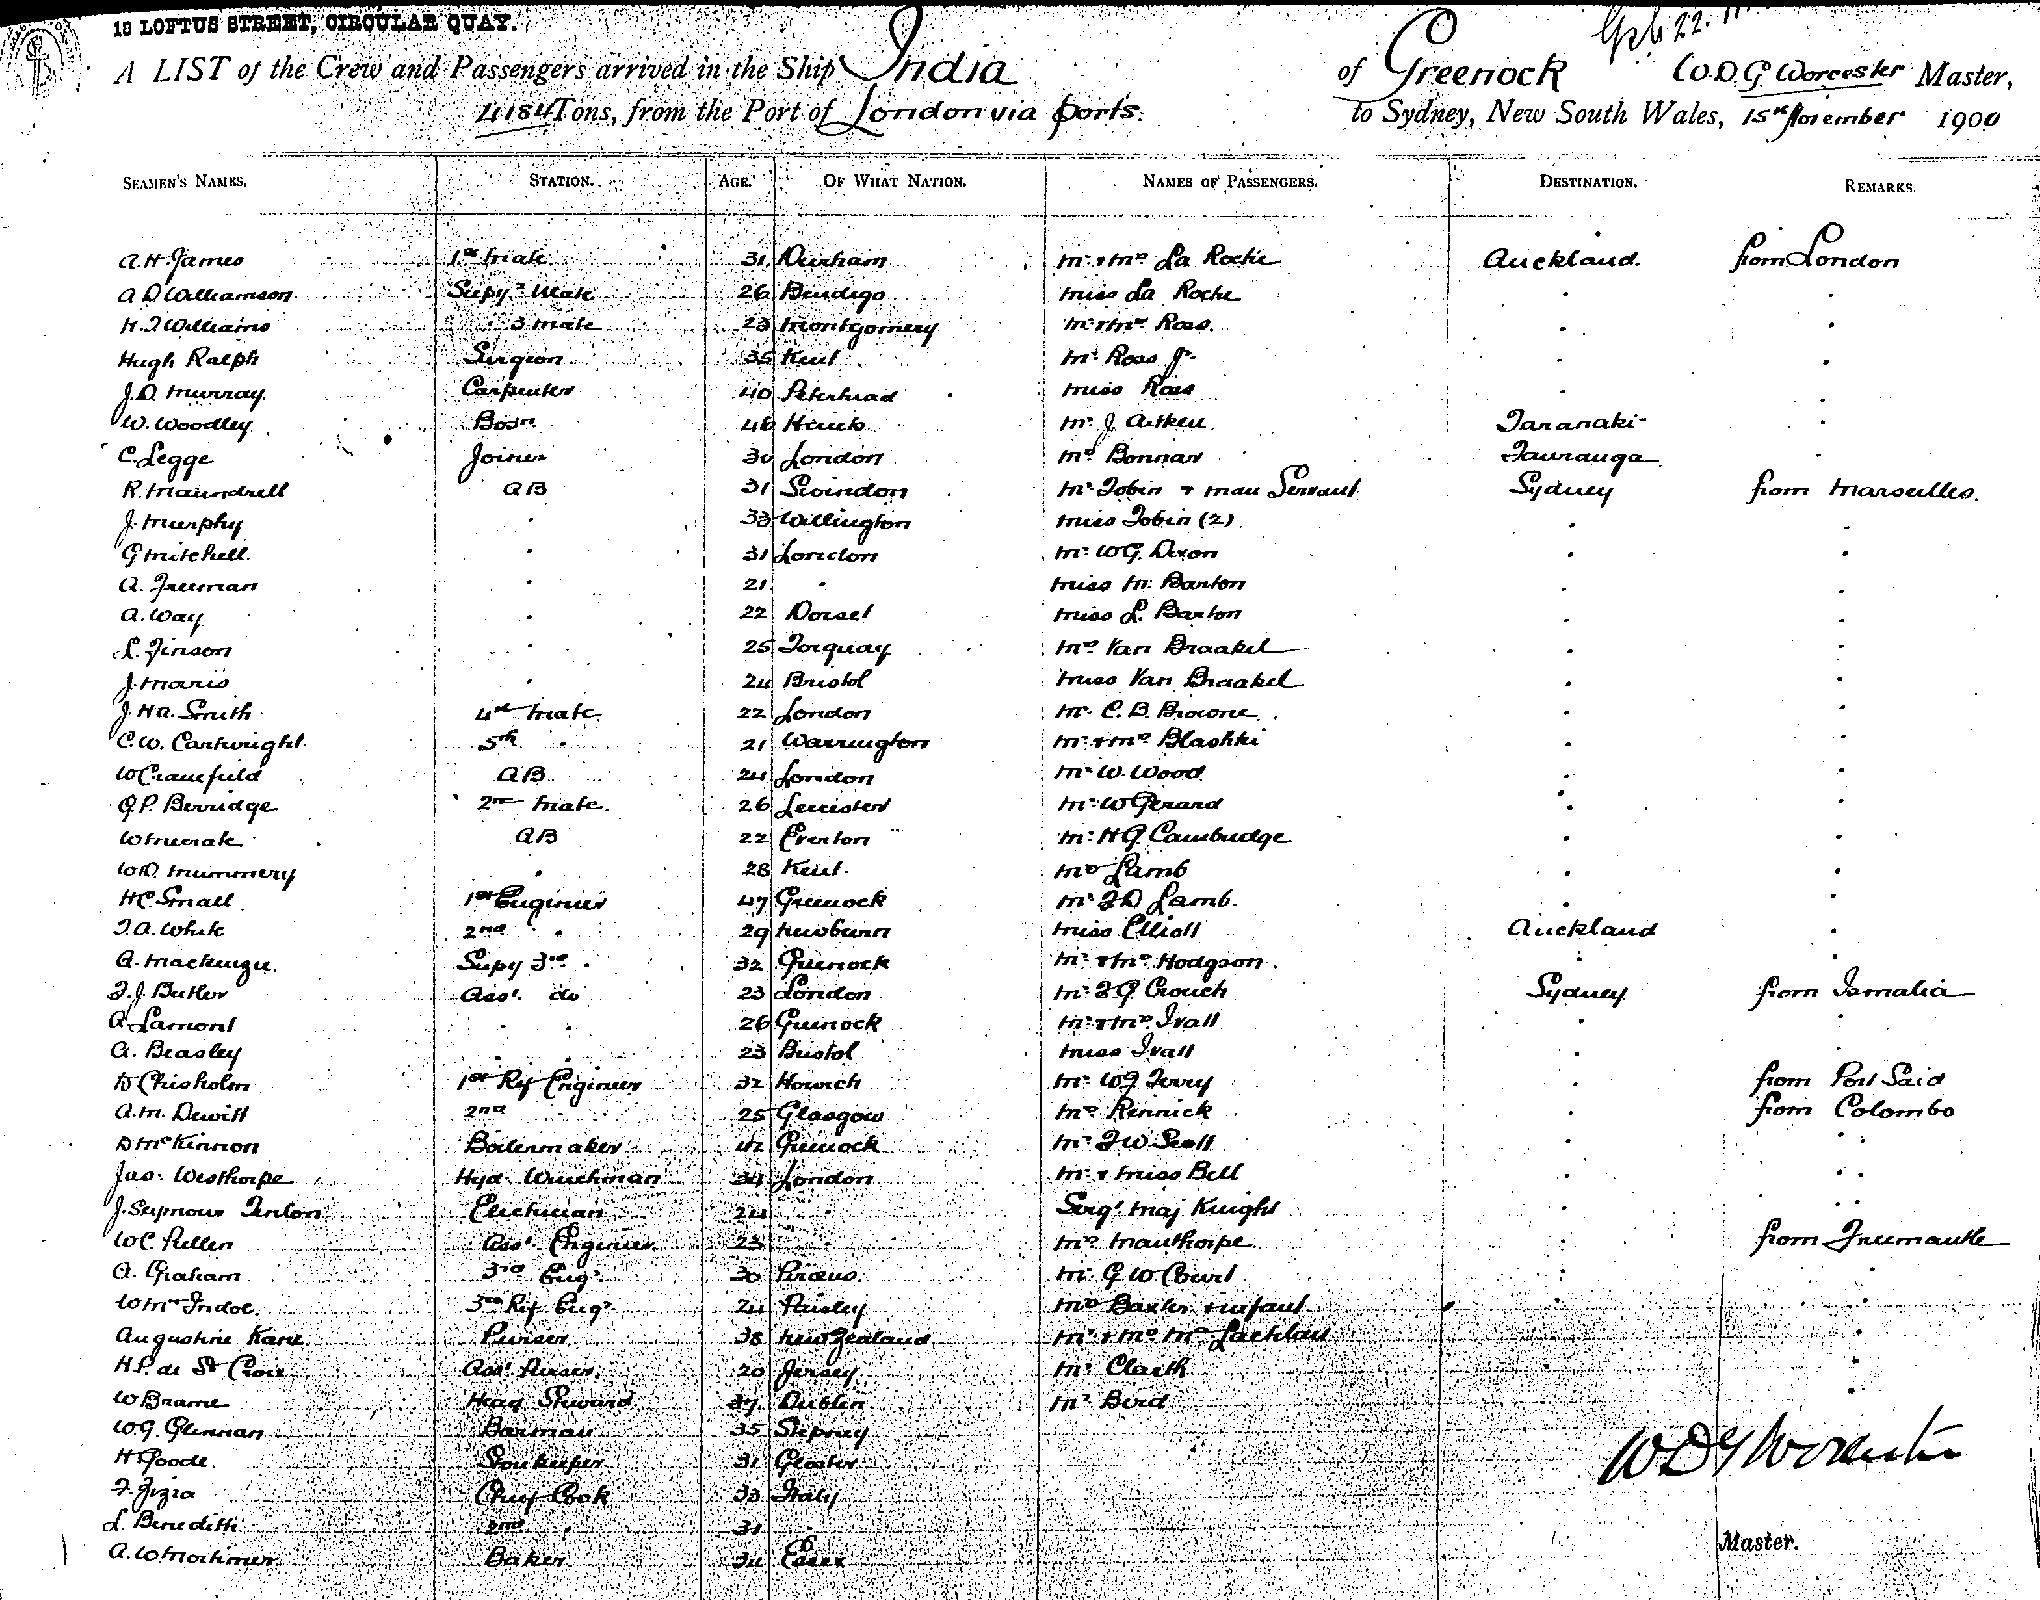 18 LOFTUS STREET, CIRCULAR QUAY.
A LIST of the Crew and Passengers arrived in the Ship India of Greenock W.D.G Worcester Master,
4184 Tons, from the Port of London via ports. to Sydney, New South Wales, 15th November 1900
SEAMEN'S NAMES. STATION. AGE. OF WHAT NATION. NAMES OF PASSENGERS. DESTINATION. REMARKS.
A.H. James 1st Mate 31 Durham Mr & Mrs La Roche Auckland. from London
A D Williamson Supy 2 Mate 26 Bendigo Miss La Roche " "
H.J Williams " 3 Mate 23 Montgomery Mr & Mrs Ross. " "
Hugh Ralph Surgeon 35 Kent Mr Ross Jr. " "
J.D. Murray Carpenter 40 Peterhead Miss Ross " "
W. Woodley Bosn 46 Mr J. Aitken Taranaki "
C. Legge Joiner 30 London Mrs Bonnar Tauranga "
R. Maundrell AB 31 Swindon Mr Tobin & Man Servant Sydney from Marseilles.
J. Murphy " 33 Willington Miss Tobin (2) " "
G Mitchell " 31 London Mr W.G. Dixon " "
A. Freeman " 21 " Miss M. Barton " "
A. Way " 22 Dorset Miss L. Barton " "
L. Jinson " 25 Torquay Mrs Van Braakel " "
J. Maris " 24 Bristol Miss Van Braakel " "
J. H A. Smith 4th Mate 22 London Mr C. B. Browne " "
C.W. Cartwright 5th " 21 Warrington Mr & Mrs Blashki " "
W Cranfield AB 24 London Mr W. Wood " "
G P. Berridge 2nd Mate 26 Leicester Mr W Gerard " "
AB 22 Mr H G Cambridge " "
W.D. Mummery " 28 Kent Mrs Lamb " "
H C Small 1st Engineer 47 Greenock Mr F D Lamb. " "
J.A. White 2nd " 29 Newburn Miss Elliott Auckland "
A. Mackenzie Supy 3rd " 32 Greenock Mr & Mrs Hodgson " "
F.J. Butler Asst do 23 London Mr F G Crouch Sydney from Ismalia
A. Lamont " " 26 Greenock Mr & Mrs Ivall " "
A. Beasley " " 23 Bristol Miss Ivall " "
D Chisholm 1st Rf Engineer 32 Horwich Mr W J Terry " from Port Said
A.M. Dewitt 2nd 25 Glasgow Mrs Rennick " from Colombo
D McKinnon Boilermaker 42 Greenock Mr F W Scott " "
Jas. Westhorpe Hyd. Winchman 34 London Mr & Miss Bell " "
J. Seymour Fenton Electrician 24 " Sergt Maj Knight " "
W C Pullen Asst Engineer 23 " Mrs Manthorpe " from Freemantle
A. Graham 3rd Engr 30 Piraeus Mr G W Court " "
3rd Rf Engr 24 Paisley Mrs Baxter & infant " "
Augustine Kane Purser 38 New Zealand Mr & Mrs McLachlan " "
H P. de St Croix Asst Purser. 20 Jersey Mr " "
W Brame Head Steward 37 Dublin Mr Bird "
W.G. Glennan Barman 35 Stepney
H Goode Storekeeper 31 Gloster
F. Fizia Chief Cook 33 Italy
L. Benedetti 2nd " 31 "
A. W Mortimer Baker 34 Essex
W D G Worcester
Master.